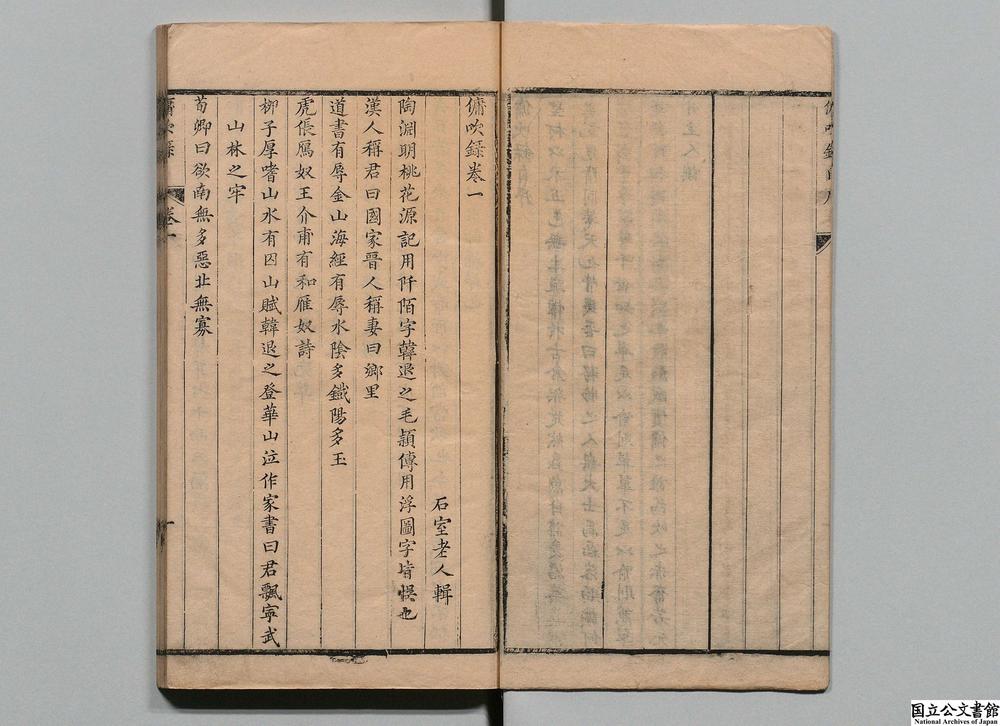 傭吹錄自序
傭吹錄卷一
石室老人輯
陶淵明桃花源記用阡陌字韓退之毛頴傳用浮圖字皆悞也
漢人稱君曰國家晉人稱妻曰鄉里
道書有辱金山海經有辱水陰多鐵陽多玉
虎倀鴈奴王介甫有和雁奴詩
柳子厚嗜山水有囚山賦韓退之登華山泣作家書曰君飄寧武
山林之牢
荀卿曰欲南無多惡北無寡
傭吹錄
卷一
一
国立公文書館
National Archives of Japan